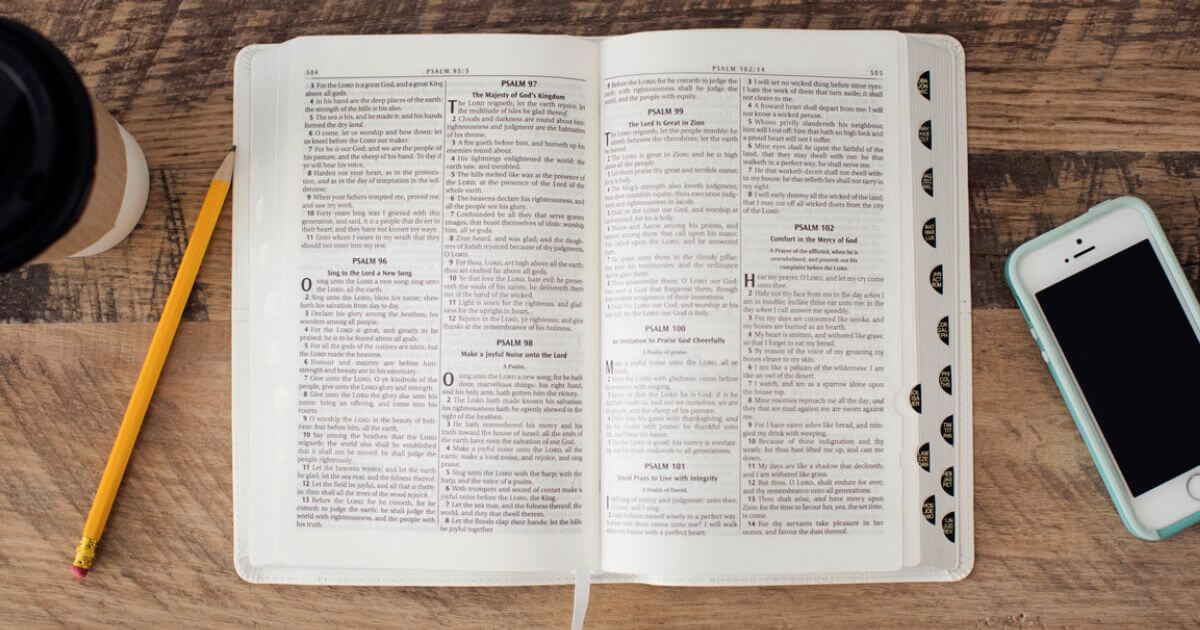 504
PSALM 95:3
3 For the LORD is a great God, and a great King
above all gods.
4 In his hand are the deep places of the earth:
the strength of the hills is his also.
5 The sea is his, and he made it: and his hands
formed the dry land.
6 O come, let us worship and bow down: let
us kneel before the LORD our maker.
7 For he is our God; and we are the people of
his pasture, and the sheep of his hand. To day if
ye will hear his voice,
8 Harden not your heart, as in the provoca-
tion, and as in the day of temptation in the wil-
derness:
9 When your fathers tempted me, proved me,
and saw my work.
10 Forty years long was I grieved with this
generation, and said, It is a people that do err in
their heart, and they have not known my ways:
11 Unto whom I sware in my wrath that they
should not enter into my rest.
PSALM 96
Sing to the Lord a New Song
O sing unto the LORD a new song: sing unto
the LORD, all the earth.
2 Sing unto the LORD, bless his name; shew
forth his salvation from day to day.
3 Declare his glory among the heathen, his
wonders among all people.
4 For the LORD is great, and greatly to be
praised: he is to be feared above all gods.
5 For all the gods of the nations are idols: but
the LORD made the heavens.
6 Honour and majesty are before him:
strength and beauty are in his sanctuary.
7 Give unto the LORD, O ye kindreds of the
people, give unto the LORD glory and strength.
8 Give unto the LORD the glory due unto his
name: bring an offering, and come into his
courts.
9 O worship the LORD in the beauty of holi-
ness: fear before him, all the earth.
10 Say among the heathen that the LORD
reigneth: the world also shall be established
that it shall not be moved: he shall judge the
people righteously.
11 Let the heavens rejoice, and let the earth
be glad; let the sea roar, and the fulness thereof.
12 Let the field be joyful, and all that is there-
in: then shall all the trees of the wood rejoice
13 Before the LORD: for he cometh, for he
cometh to judge the earth: he shall judge the
world with righteousness, and the people with
his truth.
PSALM 97
The Majesty of God's Kingdom
The LORD reigneth; let the earth rejoice; let
the multitude of isles be glad thereof.
2 Clouds and darkness are round about him:
righteousness and judgment are the habitation
of his throne.
3 A fire goeth before him, and burneth up his
enemies round about.
4 His lightnings enlightened the world: the
earth saw, and trembled.
5 The hills melted like wax at the presence of
the LORD, at the presence of the Lord of the
whole earth.
6 The heavens declare his righteousness, and
all the people see his glory.
7 Confounded be all they that serve graven
images, that boast themselves of idols: worship
him, all ye gods.
8 Zion heard, and was glad; and the daugh-
ters of Judah rejoiced because of thy judgments,
O LORD.
9 For thou, LORD, art high above all the earth:
thou art exalted far above all gods.
10 Ye that love the LORD, hate evil: he preser-
veth the souls of his saints; he delivereth them
out of the hand of the wicked.
11 Light is sown for the righteous, and glad-
ness for the upright in heart.
12 Rejoice in the LORD, ye righteous; and give
thanks at the remembrance of his holiness.
PSALM 98
Make a Joyful Noise unto the Lord
A Psalm.
O sing unto the LORD a new song; for he hath
done marvellous things: his right hand,
and his holy arm, hath gotten him the victory.
2 The LORD hath made known his salvation:
his righteousness hath he openly shewed in the
sight of the heathen.
3 He hath remembered his mercy and his
truth toward the house of Israel: all the ends of
the earth have seen the salvation of our God.
4 Make a joyful noise unto the LORD, all the
earth: make a loud noise, and rejoice, and sing
praise.
5 Sing unto the LORD with the harp; with the
harp, and the voice of a psalm.
6 With trumpets and sound of cornet make a
joyful noise before the LORD, the King.
7 Let the sea roar, and the fulness thereof; the
world, and they that dwell therein.
8 Let the floods clap their hands: let the hills
be joyful together
PSALM 102:14
505
9 Before the LORD; for he cometh to judge the
earth: with righteousness shall he judge the
world, and the people with equity.
PSALM 99
The Lord Is Great in Zion
The LORD reigneth; let the people tremble: he
sitteth between the cherubims; let the earth
be moved.
2 The LORD is great in Zion; and he is high
above all the people.
3 Let them praise thy great and terrible name;
for it is holy.
4 The king's strength also loveth judgment;
thou dost establish equity, thou executest judg-
ment and righteousness in Jacob.
5 Exalt ye the LORD our God, and worship at
his footstool; for he is holy.
6 Moses and Aaron among his priests, and
Samuel among them that call upon his name;
they called upon the LORD, and he answered
them.
7 He spake unto them in the cloudy pillar:
they kept his testimonies, and the ordinance
that he gave them.
8 Thou answeredst them, O LORD our God:
thou wast a God that forgavest them, though
thou tookest vengeance of their inventions.
9 Exalt the LORD our God, and worship at his
holy hill; for the LORD our God is holy.
PSALM 100
An Invitation to Praise God Cheerfully
A Psalm of praise.
Make a joyful noise unto the LORD, all ye
lands.
2 Serve the LORD with gladness: come before
his presence with singing.
3 Know ye that the LORD he is God: it is he
that hath made us, and not we ourselves; we are
his people, and the sheep of his pasture.
4 Enter into his gates with thanksgiving, and
into his courts with praise: be thankful unto
him, and bless his name.
5 For the LORD is good; his mercy is everlast-
ing; and his truth endureth to all generations.
PSALM 101
David Prays to Live with Integrity
A Psalm of David.
I will sing of mercy and judgment: unto thee,
O LORD, will I sing.
2 I will behave myself wisely in a perfect way.
O when wilt thou come unto me? I will walk
within my house with a perfect heart.
3 I will set no wicked thing before mine eyes:
I hate the work of them that turn aside; it shall
not cleave to me.
4 A froward heart shall depart from me: I will
not know a wicked person.
5 Whoso privily slandereth his neighbour,
him will I cut off: him that hath an high look and
a proud heart will not I suffer.
6 Mine eyes shall be upon the faithful of the
land, that they may dwell with me: he that
walketh in a perfect way, he shall serve me.
7 He that worketh deceit shall not dwell with-
in my house: he that telleth lies shall not tarry in
my sight.
8 I will early destroy all the wicked of the land;
that I may cut off all wicked doers from the city
of the LORD.
PSALM 102
Comfort in the Mercy of God
A Prayer of the afflicted, when he is
overwhelmed, and poureth out his
complaint before the LORD.
Hear my prayer, O LORD, and let my cry come
unto thee.
2 Hide not thy face from me in the day when I
am in trouble; incline thine ear unto me: in the
day when I call answer me speedily.
3 For my days are consumed like smoke, and
my bones are burned as an hearth.
4 My heart is smitten, and withered like grass;
so that I forget to eat my bread.
5 By reason of the voice of my groaning my
bones cleave to my skin.
6 I am like a pelican of the wilderness: I am
like an owl of the desert.
7 I watch, and am as a sparrow alone upon
the house top.
8 Mine enemies reproach me all the day; and
they that are mad against me are sworn against
me.
9 For I have eaten ashes like bread, and min-
gled my drink with weeping,
10 Because of thine indignation and thy
wrath: for thou hast lifted me up, and cast me
down.
11 My days are like a shadow that declineth;
and I am withered like grass.
12 But thou, O LORD, shalt endure for ever;
and thy remembrance unto all generations.
13 Thou shalt arise, and have mercy upon
Zion: for the time to favour her, yea, the set time,
is come.
14 For thy servants take pleasure in her
stones, and favour the dust thereof.